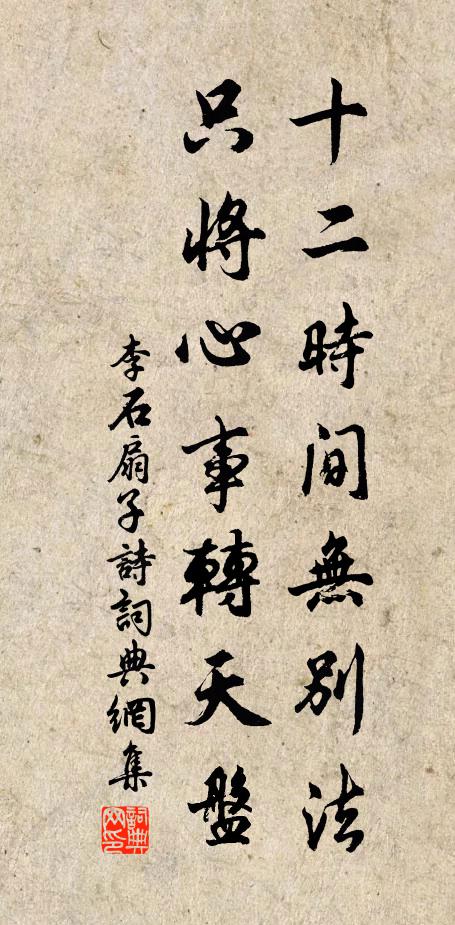 十二時間無別法
只將心事轉天盤
李石扇子詩詞典網集
詞典網印